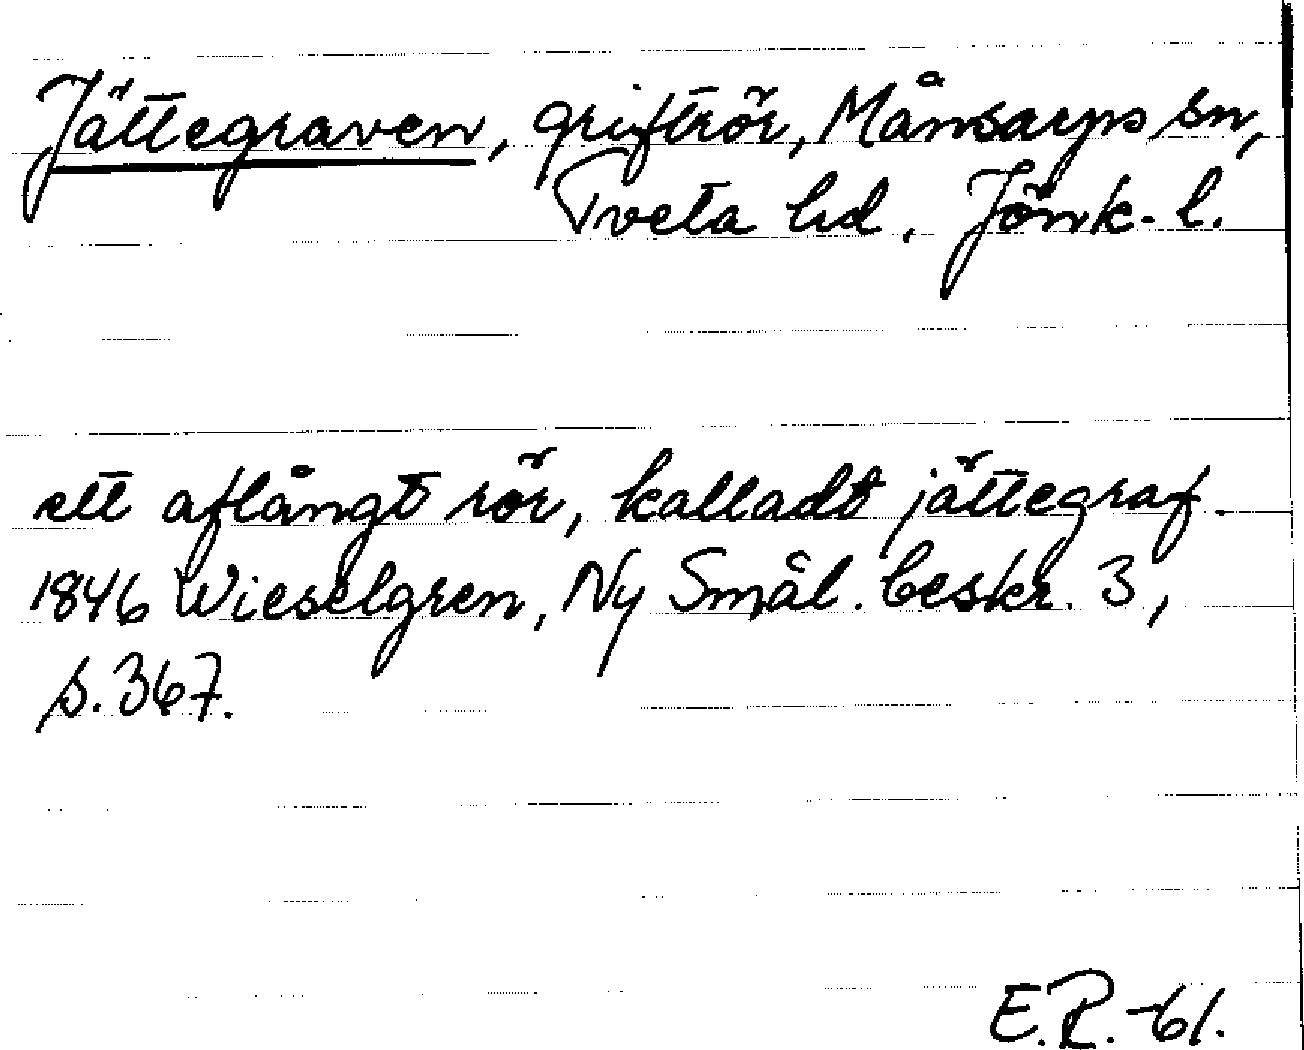 Jättegraven, griftrör, Månsarps sn,
Tveta hd. Jönk. l.
ett aflångt rör, kalladt jättegraf.
1846 Wieselgren, Ny Smål. beskr. 3,
s. 367.
E.R. -61.